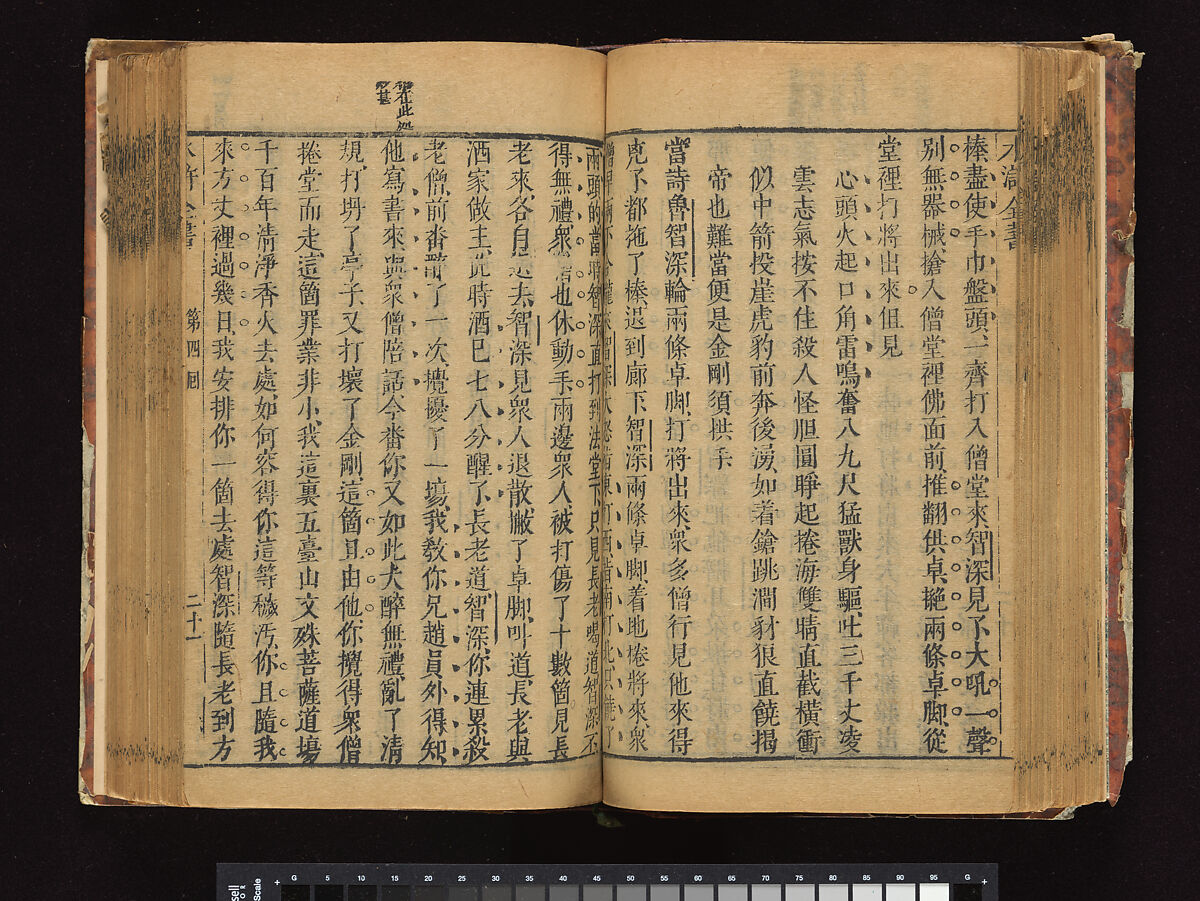 水滸全書
棒盡使手巾盤頭一齊打入僧堂來智深見了大吼一聲
別無器械搶入僧堂裡佛面前推翻供卓撧兩條卓脚從
堂裡打將出來但見
心頭火起口角雷鳴奮八九尺猛獸身軀吐三千丈凌
雲志氣按不住殺人怪胆圓睜起捲海雙睛直截橫衝
似中箭投崖虎豹前奔後湧如着鎗跳澗豺狼直饒揭
帝也難當便是金剛須拱手
當詩魯智深輪兩條卓脚打將出來衆多僧行見他來得
兇了都拖了棒退到廊下智深兩條卓脚着地捲將來衆
僧早兩下合攏來智深大怒指東打西指南打北只饒了
兩頭的當時智深直打到法堂下只見長老喝道智深不
得無禮衆僧也休動手兩邊衆人被打傷了十數箇見長
老來各自退去智深見衆人退散撇了卓脚叫道長老與
洒家做主此時酒已七八分醒了長老道智深你連累殺
老僧前番醉了一次攪擾了一塲我敎你兄趙員外得知
他寫書來與衆僧陪話今番你又如此大醉無禮亂了清
規打坍了亭子又打壞了金剛這箇且由他你攪得衆僧
捲堂而走這箇罪業非小我這裏五臺山文殊菩薩道塲
千百年清淨香火去處如何容得你這等穢汚你且隨我
來方丈裡過幾日我安排你一箇去處智深隨長老到方
水滸全書
第四囘
二十一
在此
甚